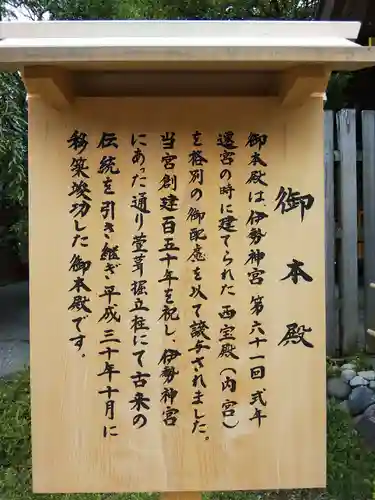 御本殿
御本殿は、伊勢神宮第六十一回式年
遷宮の時に建てられた西宝殿(内宮)
を格別の御配慮を以て譲与されました。
当宮創建百五十年を記し、伊勢神宮
にあった通り萱葺掘立柱にて古来の
伝統を引き継ぎ平成三十年十月に
移築竣功した御本殿です。